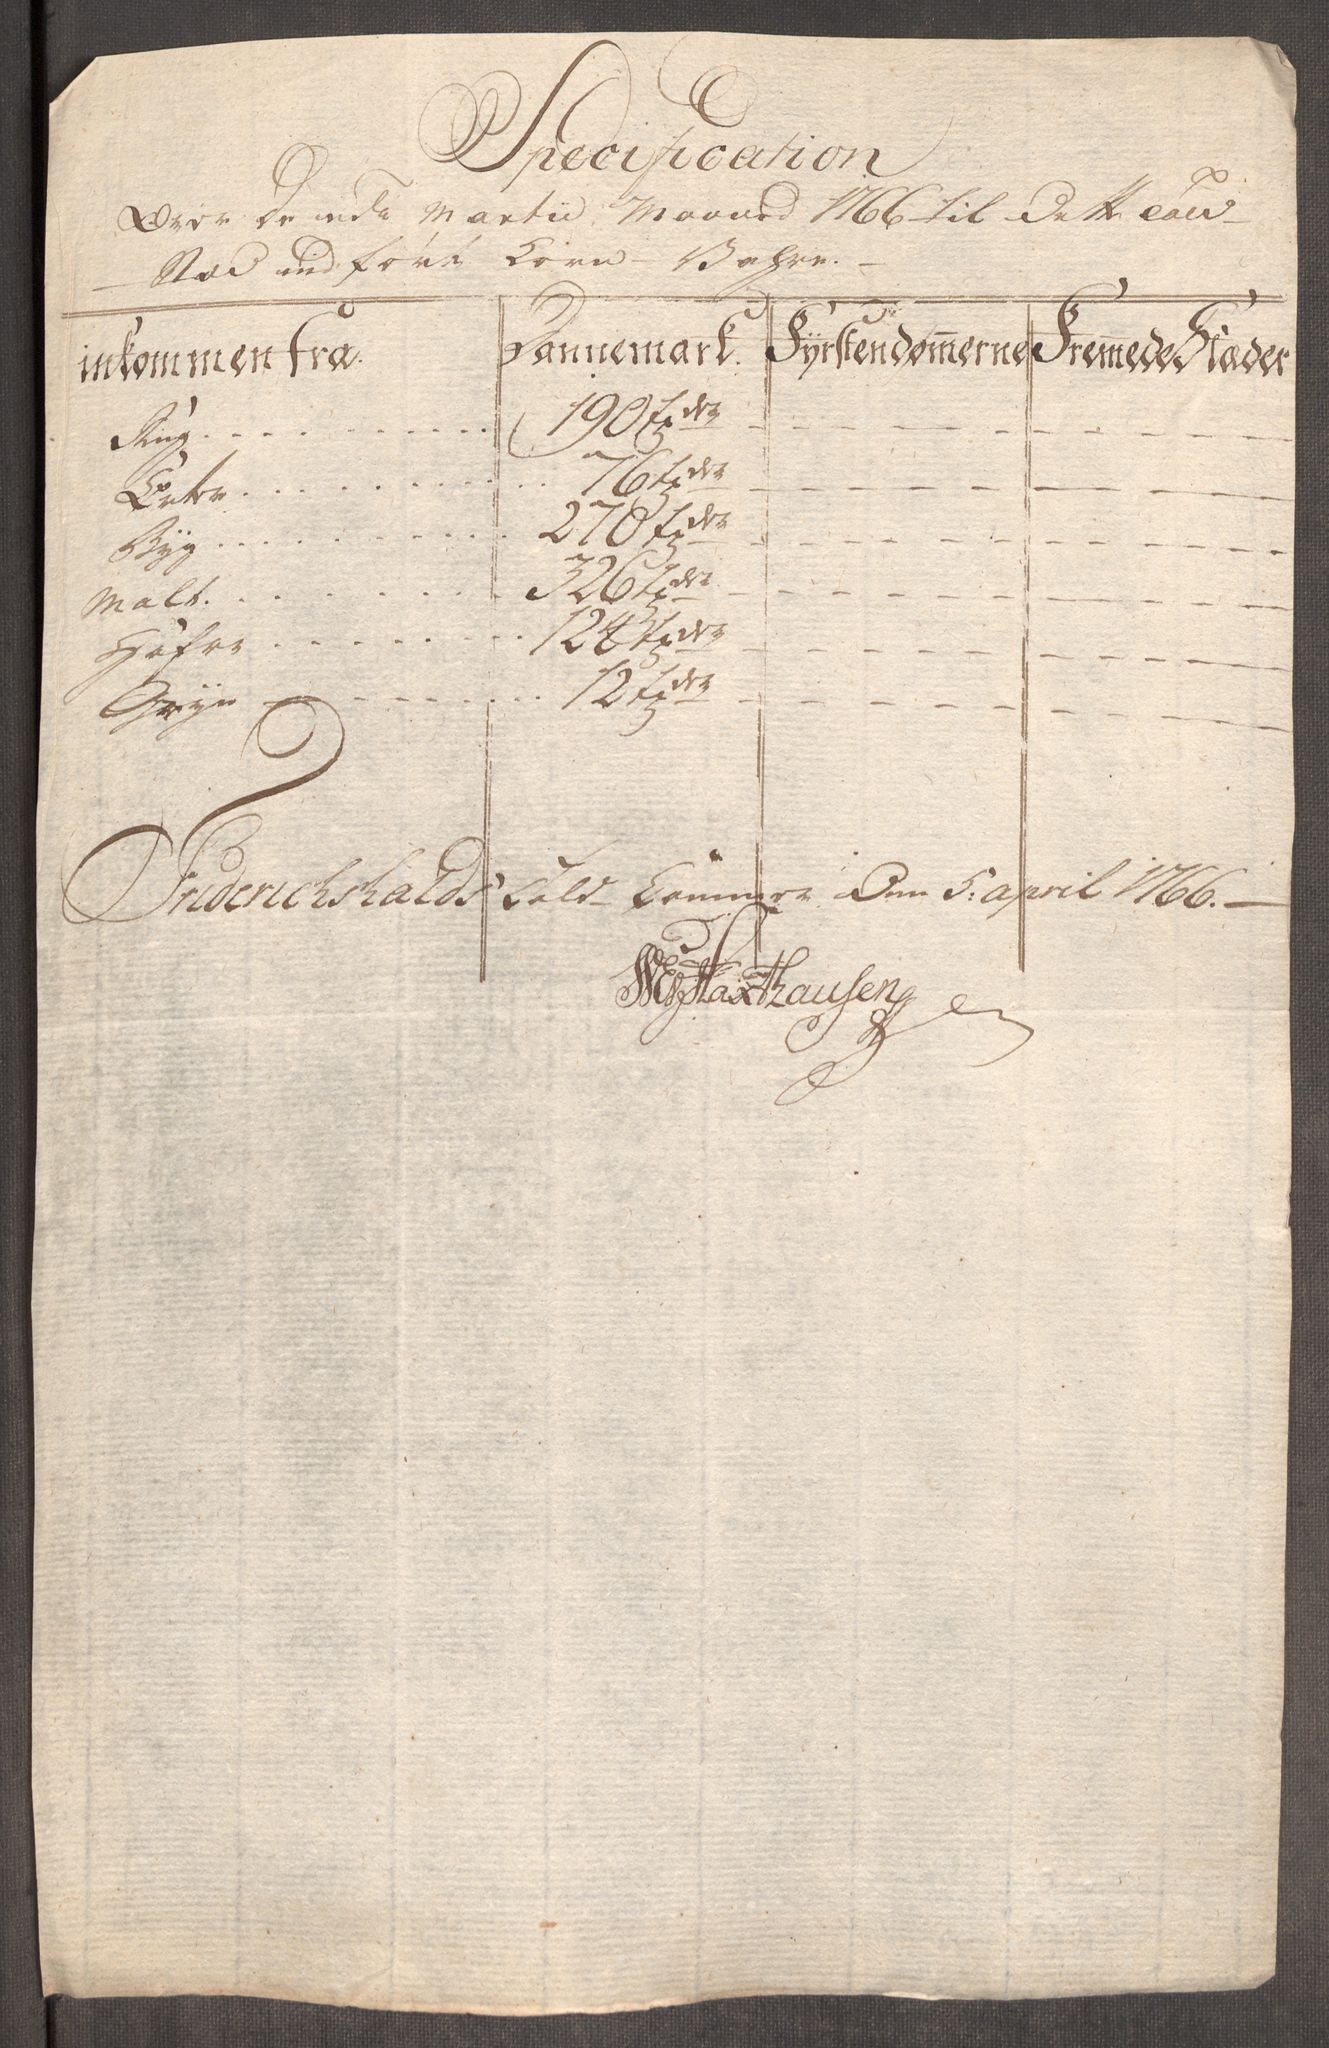 Specification
Over De udi Martii Maaned 1766 til Dette Told
Stæd indførte Korn Vahre.
inkommen fra. Dannemark. Fyrstendom̄erne Fremede Stæder
Rug 190 tr̄der
Erter 76 tr̄der
Byg 278 tr̄der
Malt 326 tr̄der
Hafre 124 tr̄der
Gryn 12 tr̄der
Friderichshalds Told Kammer Den 5. april 1766.
Haxthausen